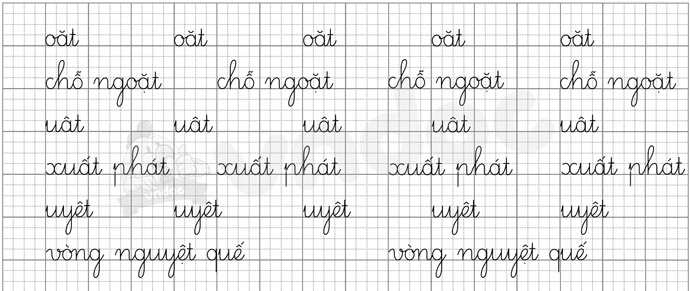 oăt oăt oăt oăt oăt
chỗ ngoặt chỗ ngoặt chỗ ngoặt chỗ ngoặt
uât uât uât uât uât
xuất phát xuất phát xuất phát xuất phát
uyêt uyêt uyêt uyêt uyêt
vòng nguyệt quế vòng nguyệt quế